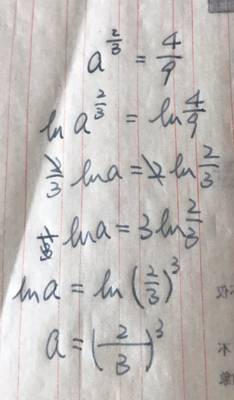 a^{2/3} = 4/9
ln a^{2/3} = ln 4/9
2/3 ln a = 2 ln 2/3
1/3 ln a = 3 ln 2/3
ln a = ln (2/3)^3
a = (2/3)^3
不